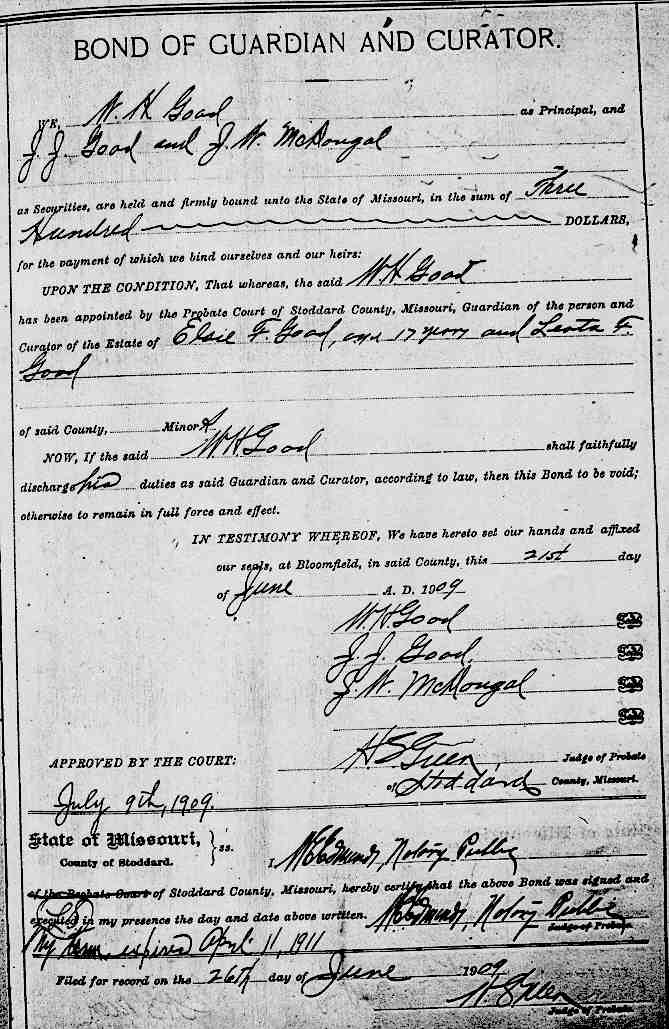 BOND OF GUARDIAN AND CURATOR.
WE, W. H. Good as Principal, and
J. J. Good and J. W. McDougal
as Securities, are held and firmly bound unto the State of Missouri, in the sum of Three
Hundred DOLLARS,
for the payment of which we bind ourselves and our heirs:
UPON THE CONDITION, That whereas, the said W. H. Good
has been appointed by the Probate Court of Stoddard County, Missouri, Guardian of the person and
Curator of the Estate of Elsie F. Good, age 17 years and Leota F.
Good
of said County, Minors
NOW, If the said W. H. Good shall faithfully
discharge his duties as said Guardian and Curator, according to law, then this Bond to be void;
otherwise to remain in full force and effect.
IN TESTIMONY WHEREOF, We have hereto set our hands and affixed
our seals, at Bloomfield, in said County, this 21st day
of June A. D. 1909
W. H. Good
J. J. Good
J. W. McDougal
APPROVED BY THE COURT: H S Green Judge of Probate
of Stoddard County, Missouri.
July 9th, 1909.
State of Missouri, } ss.
County of Stoddard. I, Notary Public
of the Probate Court of Stoddard County, Missouri, hereby certify that the above Bond was signed and
executed in my presence the day and date above written. Notary Public
Judge of Probate.
My term expires April 11, 1911
Filed for record on the 26th day of June 1909
H S Green
Judge of Probate.